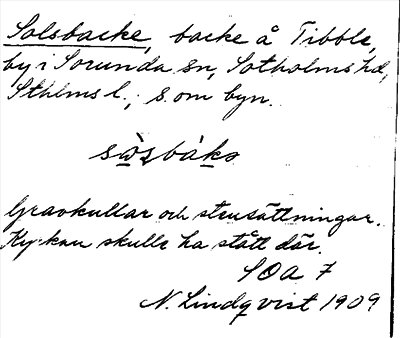 Solsbacke, backe å Tibble,
by i Sorunda sn, Sotholms hd,
Sthlms l., S. om byn.
sὼsbàkɷ
Gravkullar och stensättningar.
Kyrkan skulle ha stått där.
SOA 7
N. Lindqvist 1909